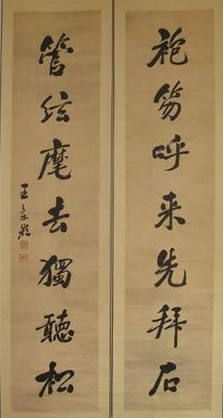 袍笏呼来先拜石
管弦麾去獨聽松
王景禧